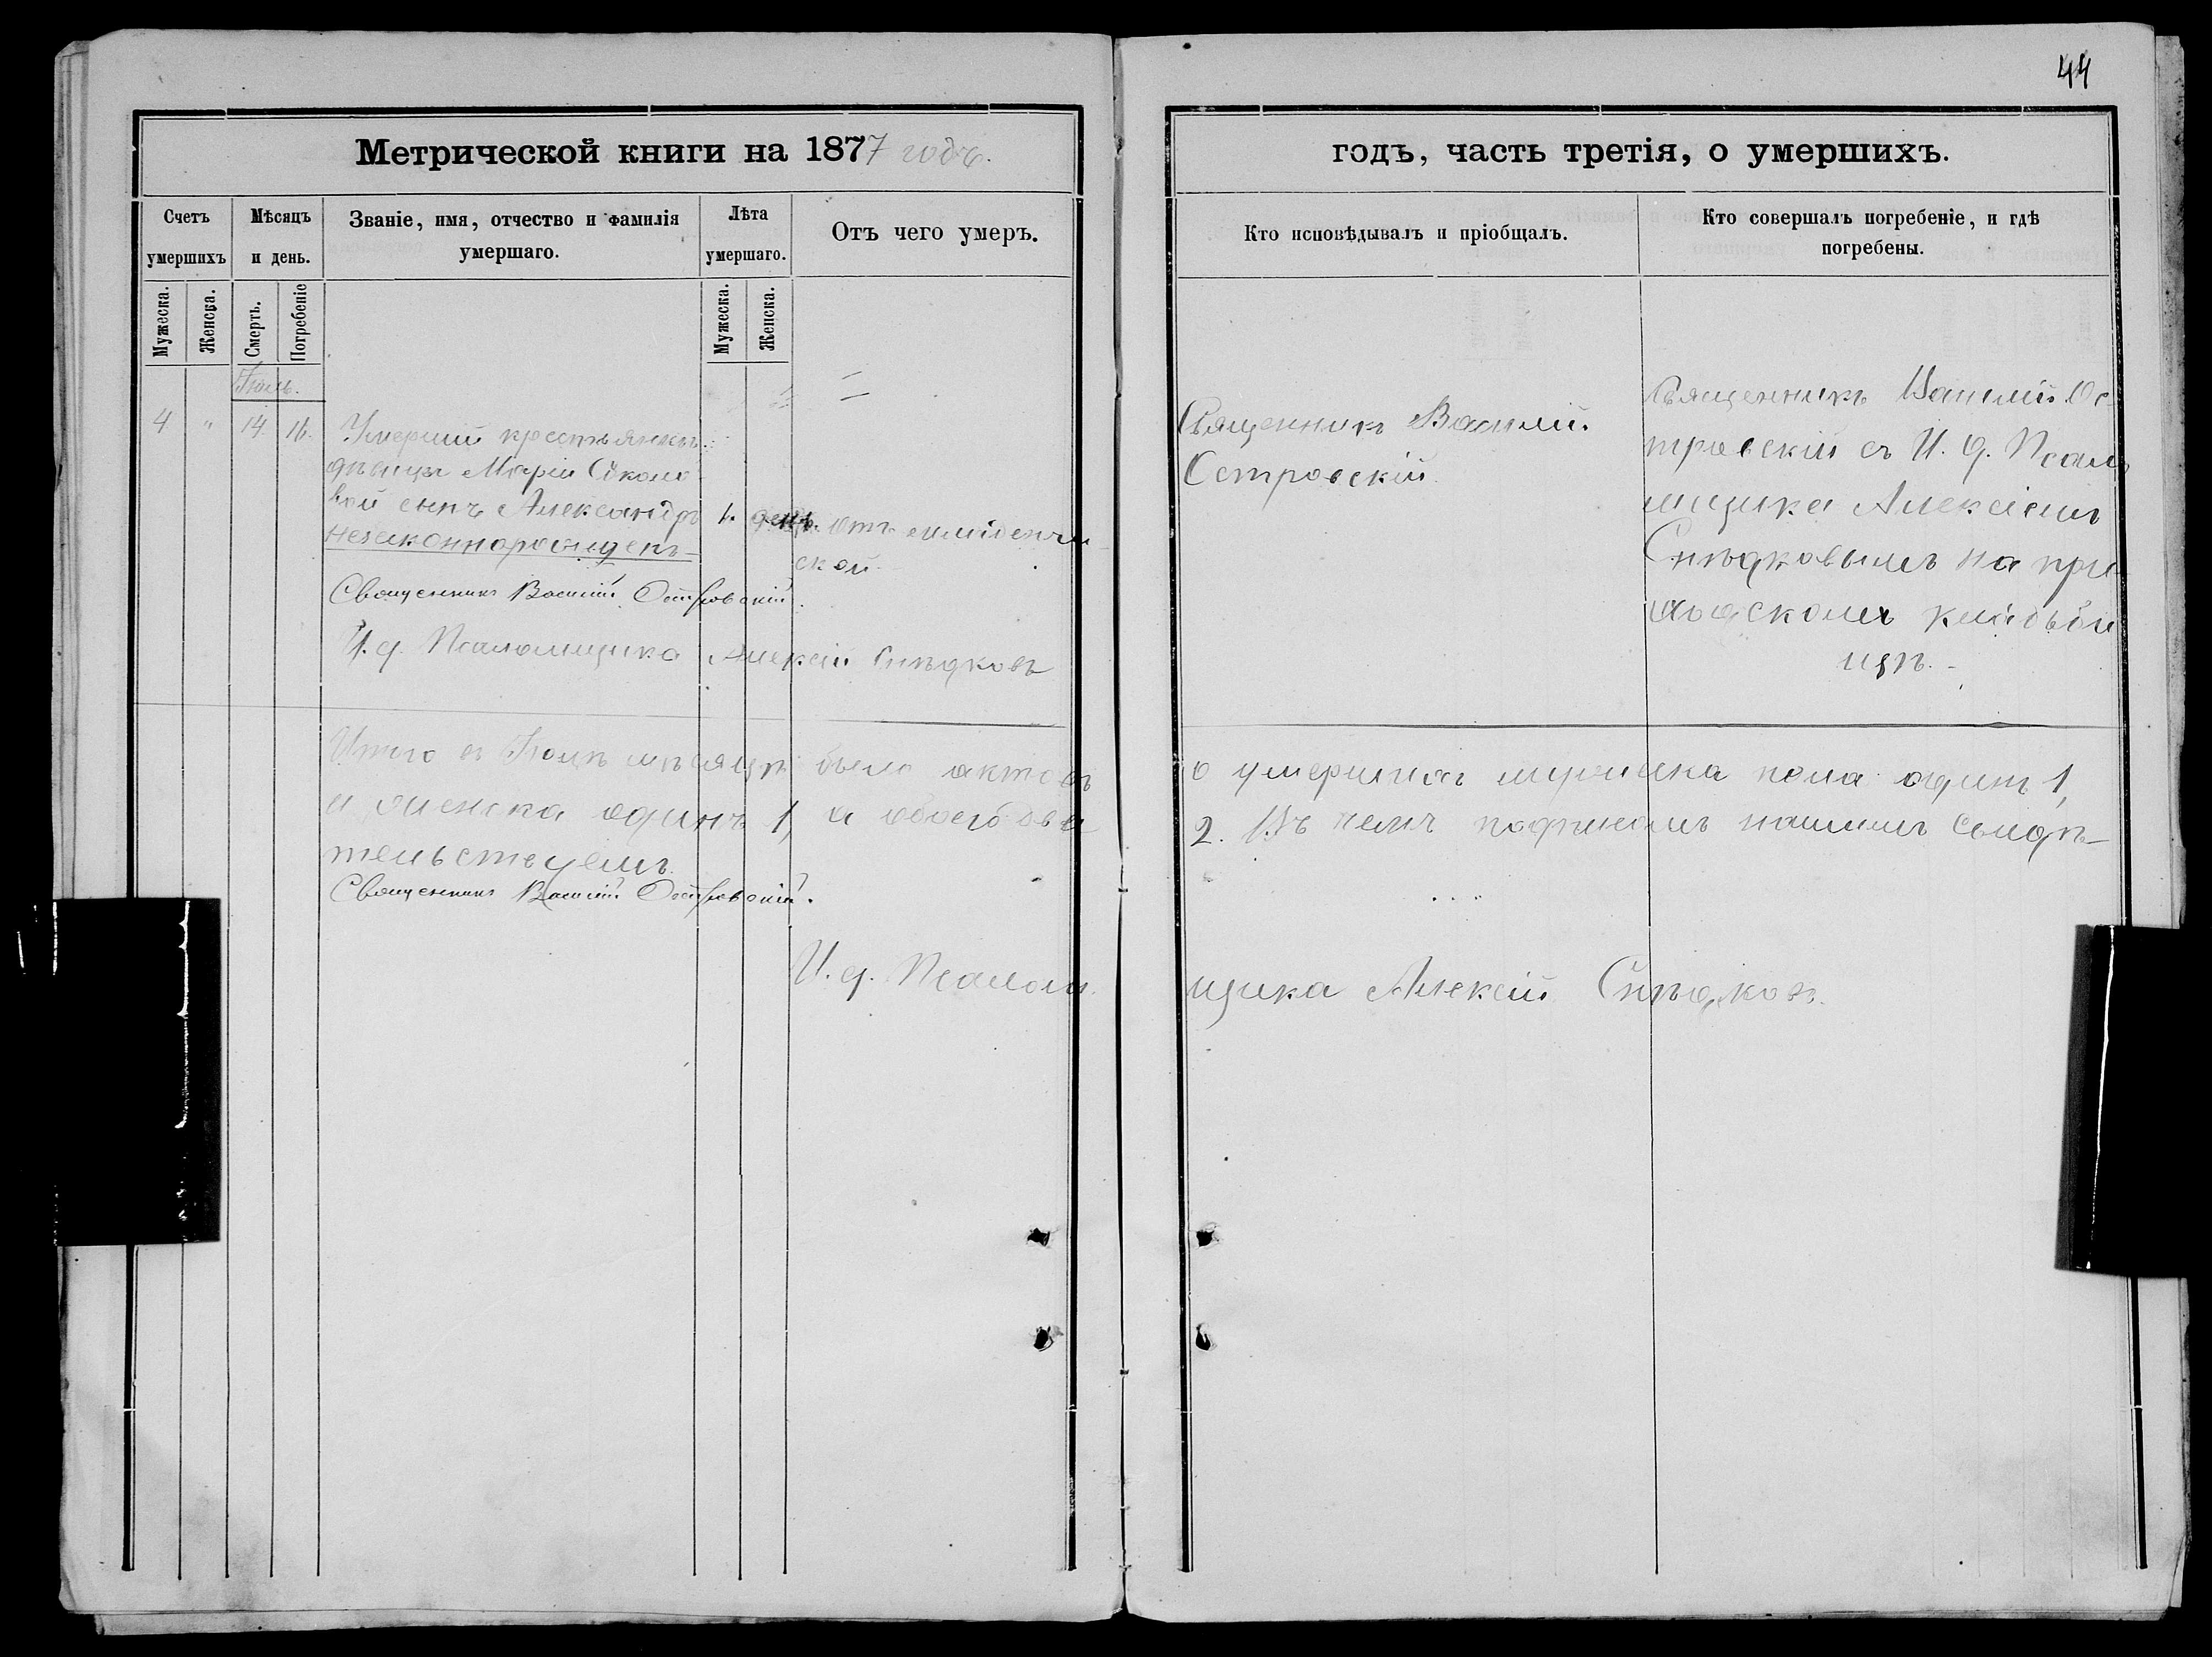 44
Метрической книги на 1877 годъ.
годъ, часть третія, о умершихъ.
Счетъ умершихъ
Мѣсяцъ и день.
Званіе, имя, отчество и фамилія умершаго.
Лѣта умершаго.
Отъ чего умеръ.
Кто исповѣдывалъ и пріобщалъ.
Кто совершалъ погребеніе, и гдѣ погребены.
Мужеска.
Женска.
Смерть.
Погребеніе
Мужеска.
Женска.
4 " 14. 16.
Умерший крестьянки
дѣвицы Маріи
вой сынъ Александръ 1. день. отъ младенче
незаконнорожденъ ской.
Священникъ Василій Островскій.
И. д. Псаломщика Алексѣй Снѣдковъ
Священникъ Василій.
Островскій.
Священникъ Василій Ос
тровскій съ И. д. Псалом
щика Алексѣемъ
Снѣдковымъ на при
ходскомъ кладби
щѣ.
Итого въ мѣсяцѣ было актовъ о умершихъ мужеска пола одинъ 1,
и женска одинъ 1, а обоего два 2. Въ чемъ подписомъ нашимъ свидѣ
тельствуемъ.
Священникъ Василій Островскій.
И. д. Псалом щика Алексѣй Снѣдковъ.